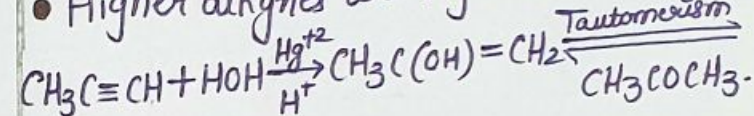 • Higher alkynes
CH3C≡CH+HOH Hg+2 H+ → CH3C(OH)=CH2 Tautomerism ⇌
CH3COCH3.